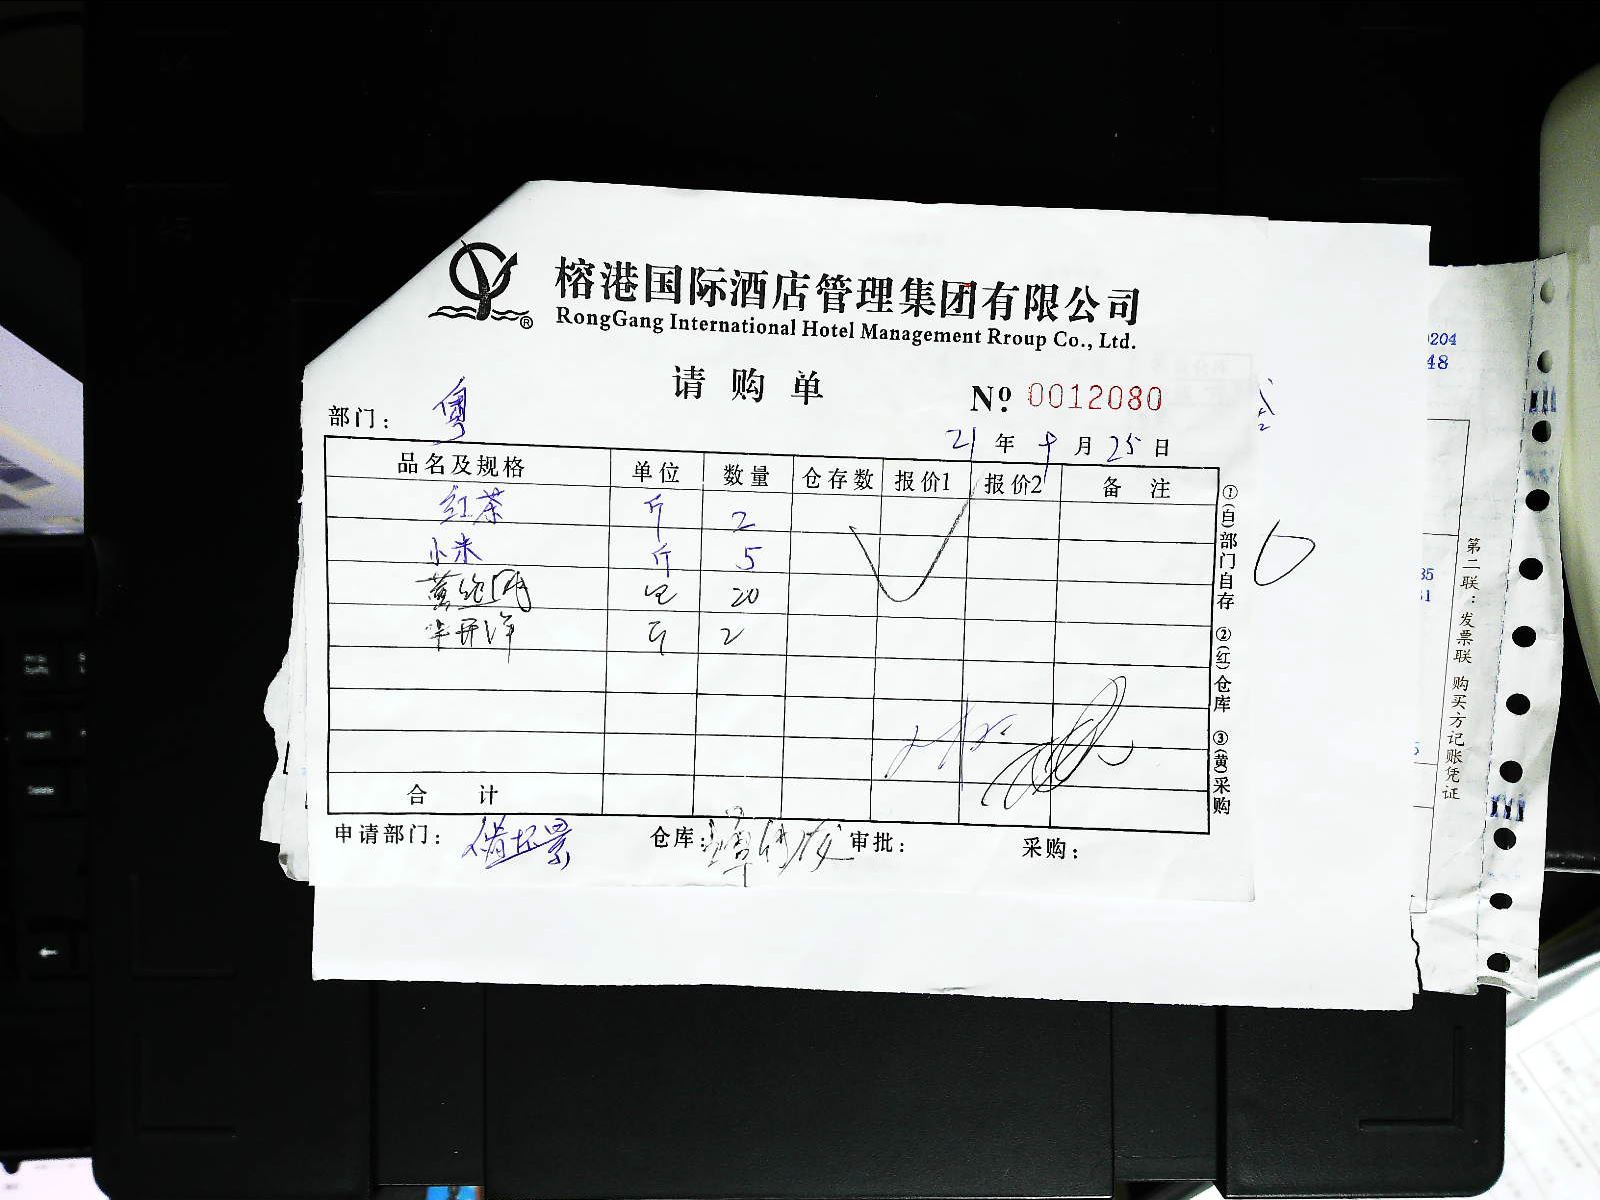 榕港国际酒店管理集团有限公司
RongGang International Hotel Management Rroup Co., Ltd.
请购单
№ 0012080
部门: 粤
21 年 9 月 25 日
品名及规格 单位 数量 仓存数 报价1 报价2 备注
红茶 斤 2
小米 斤 5
包 20
斤 2
合计
申请部门: 仓库: 审批: 采购:
①(自)部门自存 ②(红)仓库 ③(黄)采购
0204
48
35
31
5
第二联:发票联 购买方记账凭证